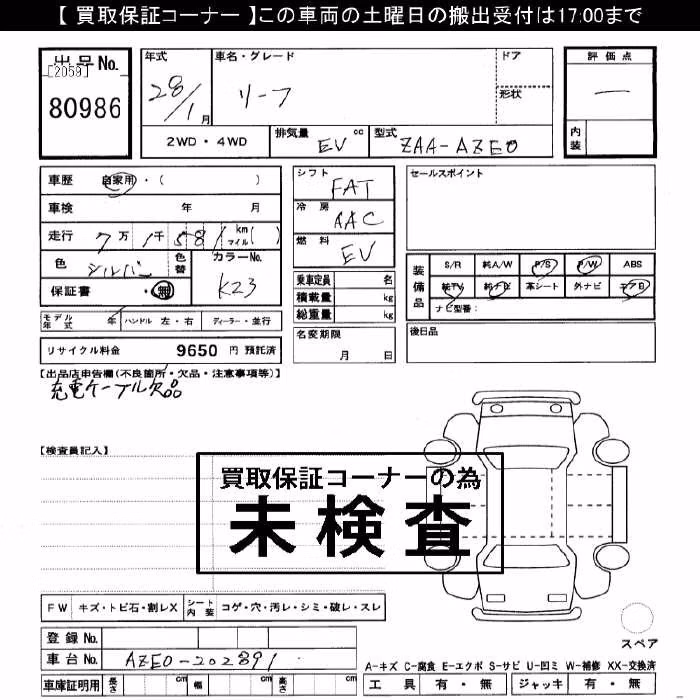 【 買取保証コーナー 】この車両の土曜日の搬出受付は17:00まで
出品No.
[2059]
80986
年式
28/1月
車名・グレード
リーフ
ドア
形状
評価点
―
内装
2WD・4WD
排気量 EV cc
型式 ZAA-AZE0
車歴 自家用・( )
車検 年 月
走行 7万1千581km マイル( )
色 シルバー
色替
カラーNo. K23
保証書 ・無
モデル年式 年 ハンドル 左・右 ディーラー・並行
リサイクル料金 9650 円 預託済
シフト FAT
冷房 AAC
燃料 EV
乗車定員 名
積載量 kg
総重量 kg
名変期限
月 日
セールスポイント
装備品
S/R 純A/W P/S P/W ABS
純TV 純ナビ 革シート 外ナビ エアB
ナビ型番:
後日品
【出品店申告欄(不良箇所・欠品・注意事項等)】
充電ケーブル欠品
【検査員記入】
買取保証コーナーの為
未検査
FW キズ・トビ石・割レX シート内装 コゲ・穴・汚レ・シミ・破レ・スレ
登録No.
車台No. AZE0-202891
車庫証明用 長さ cm 幅 cm 高さ cm
スペア
A-キズ C-腐食 E-エクボ S-サビ U-凹ミ W-補修 XX-交換済
工具 有・無 ジャッキ 有・無